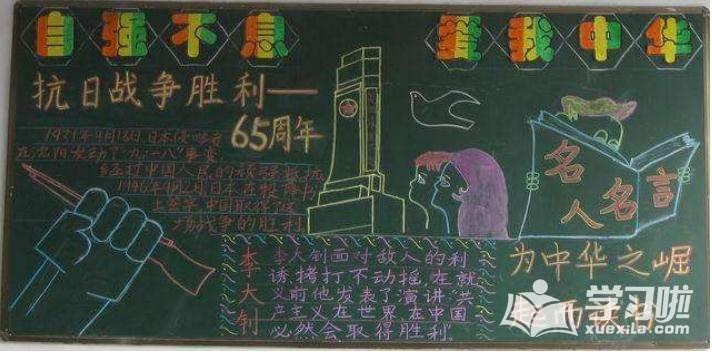 自强不息 爱我中华
抗日战争胜利——
65周年
1931年9月18日日本侵略者
在沈阳发动了"九·一八"事变
自主打中国人民的顽强抵抗
日本在投降书
上签字 中国取得了这
场战争的胜利
李大钊
李大钊面对敌人的利
诱拷打不动摇在就
义前他发表了演讲"共
产主义在世界在中国
必然会取得胜利
名人名言
为中华之崛
起而读书
学习啦
xuexila.com